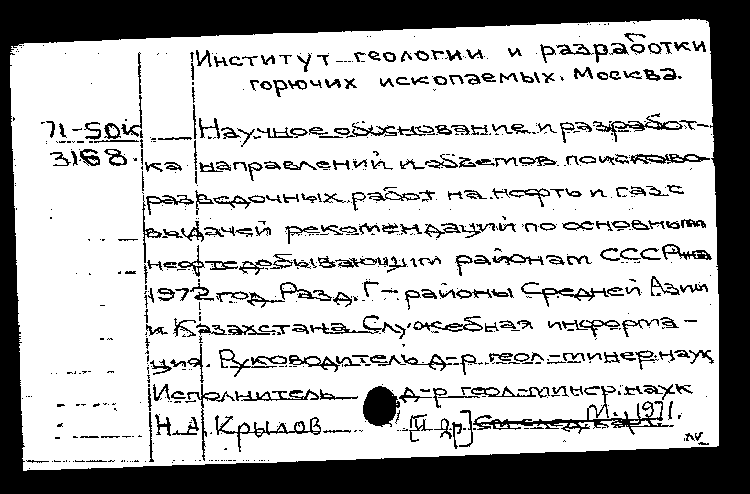 Институт геологии и разработки
горючих ископаемых. Москва.
71-5ОК
3168.
Научное обоснование и разработ-
ка направлений и объемов поисково-
разведочных работ на нефть и газ с
выдачей рекомендаций по основным
нефтедобывающим районам СССР на
1972 год. Разд. Г - районы Средней Азии
и Казахстана. Служебная информа-
ция. Руководитель д-р геол.-минер. наук
Исполнитель д-р геол.-минер. наук
Н.А. Крылов [и др.] См след. карт. М., 1971.